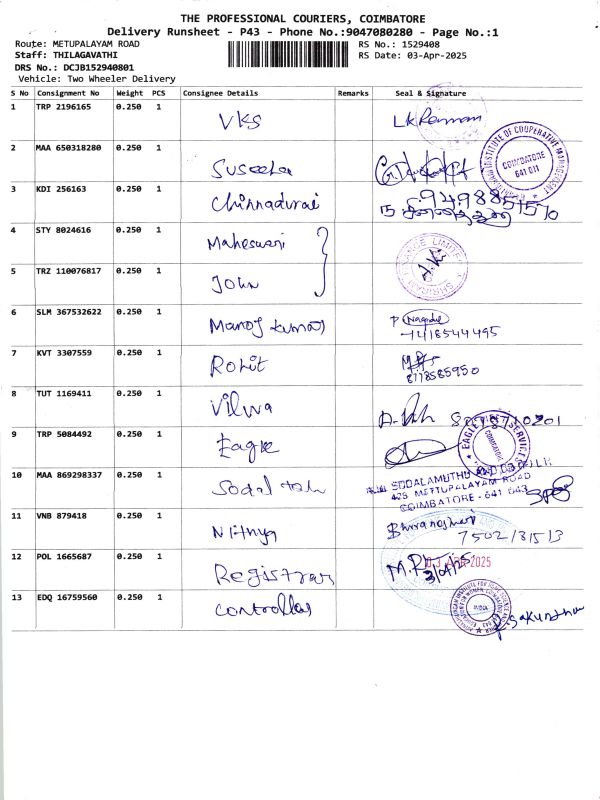 THE PROFESSIONAL COURIERS, COIMBATORE
Delivery Runsheet - P43 - Phone No.:9047080280 - Page No.:1
Route: METUPALAYAM ROAD
RS No.: 1529408
Staff: THILAGAVATHI
RS Date: 03-Apr-2025
DRS No.: DCJB152940801
Vehicle: Two Wheeler Delivery
S No Consignment No Weight PCS Consignee Details Remarks Seal & Signature
1 TRP 2196165 0.250 1 VKS
2 MAA 650318280 0.250 1 Suseela
INSTITUTE OF COOPERATIVE MANAGEMENT
COIMBATORE
641 011
3 KDI 256163 0.250 1 Chinnadurai
4 STY 8024616 0.250 1 Maheswari
5 TRZ 110076817 0.250 1 John
6 SLM 367532622 0.250 1 Manoj kumar
7 KVT 3307559 0.250 1 Rohit
8778585950
8 TUT 1169411 0.250 1 Vilwa
9 TRP 5084492 0.250 1 Eagle
10 MAA 869298337 0.250 1
METTUPALAYAM ROAD
COIMBATORE - 641 043
11 VNB 879418 0.250 1 Nithya
12 POL 1665687 0.250 1 Registrar
03 APR 2025
13 EDQ 16759560 0.250 1 Controller
INDIA